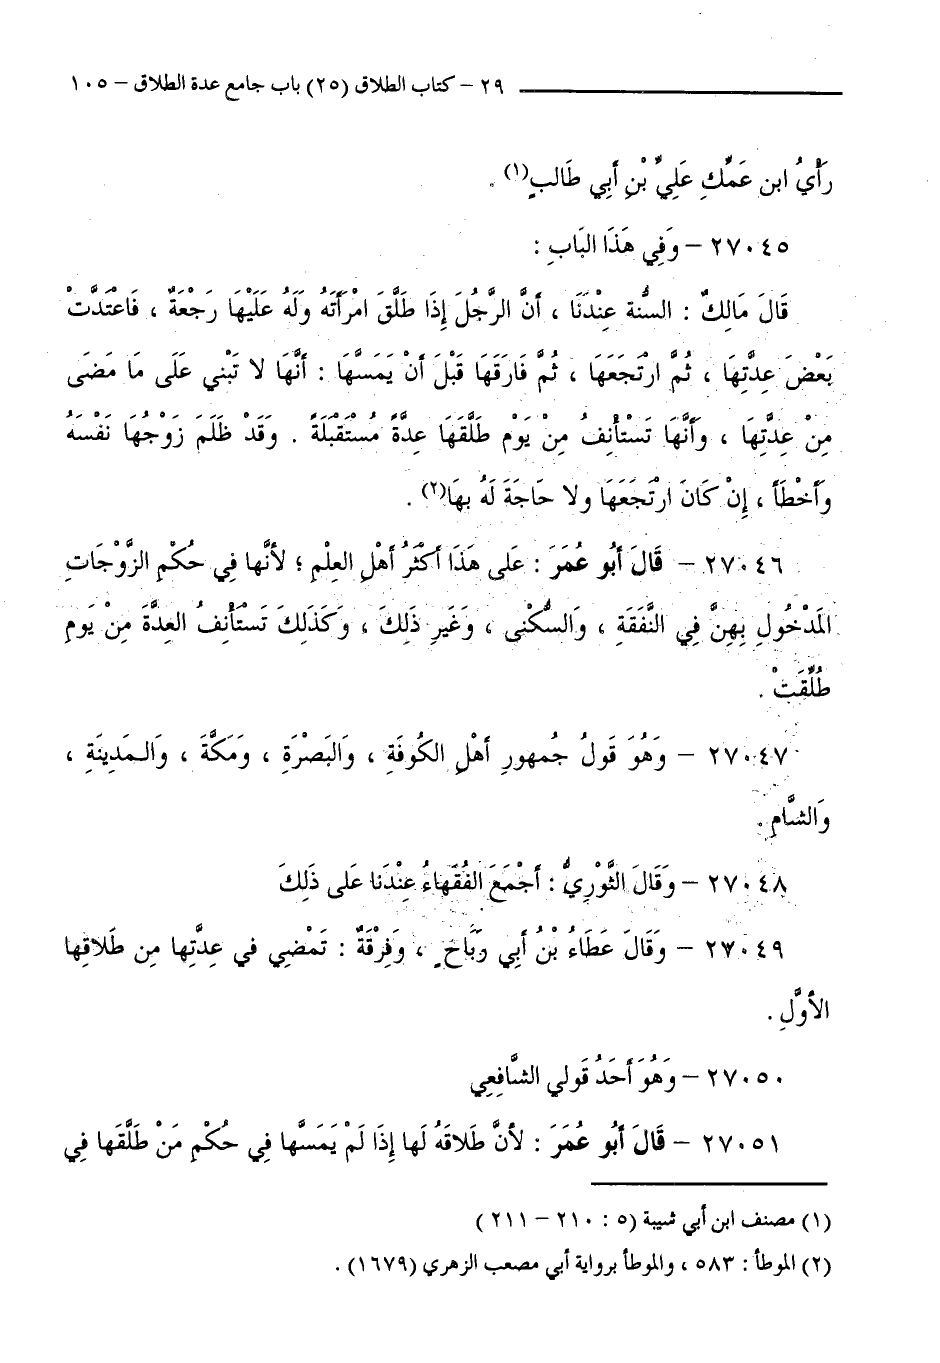 ٢٩ – كتاب الطلاق (٢٥) باب جامع عدة الطلاق – ١٠٥
رَأْيُ ابن عَمِّكِ عَلِيِّ بْنِ أبِي طَالبٍ(١) .
٢٧٠٤٥ – وَفِي هَذَا البَابِ :
قَالَ مَالِكٌ : السُّنة عِنْدَنَا ، أنَّ الرَّجُلَ إذَا طَلَّقَ امْرأتَهُ وَلَهُ عَلَيْهَا رَجْعَةٌ ، فَاعْتَدَّتْ
بَعْضَ عِدَّتِهَا ، ثُمَّ ارْتَجَعَهَا ، ثُمَّ فَارَقَهَا قَبْلَ أنْ يَمَسَّهَا : أنَّهَا لا تَبْنِي عَلَى مَا مَضَى
مِنْ عِدَّتِهَا ، وَأَنَّهَا تَسْتَأنِفُ مِنْ يَوْمِ طَلَّقَهَا عِدَّةً مُسْتَقْبَلَةً . وَقَدْ ظَلَمَ زَوْجُهَا نَفْسَهُ
وَأَخْطَأَ ، إِنْ كَانَ ارْتَجَعَهَا ولا حَاجَةَ لَهُ بِهَا(٢) .
٢٧٠٤٦ – قَالَ أبُو عُمَرَ : عَلى هَذَا أكْثَرُ أهْلِ العِلْمِ ؛ لأنَّها فِي حُكْمِ الزَّوْجَاتِ
المَدْخُولِ بِهِنَّ فِي النَّفَقَةِ ، وَالسُّكْنى ، وَغَيرِ ذَلِكَ ، وَكَذَلِكَ تَسْتَأْنِفُ العِدَّةَ مِنْ يَومِ
طُلِّقَتْ .
٢٧٠٤٧ – وَهُوَ قَولُ جُمهورِ أهْلِ الكُوفَةِ ، وَالبَصْرَةِ ، وَمَكَّةَ ، وَالمَدِينَةِ ،
وَالشَّامِ .
٢٧٠٤٨ – وَقَالَ الثَّوْرِيُّ : أجْمَعَ الفُقَهاءُ عِنْدَنا عَلى ذَلِكَ
٢٧٠٤٩ – وَقَالَ عَطَاءُ بْنُ أبِي رَبَاحٍ ، وَفِرْقَةٌ : تَمْضِي في عِدَّتِها مِن طَلاقِها
الأوَّلِ .
٢٧٠٥٠ – وَهُوَ أحَدُ قَولي الشَّافِعِي
٢٧٠٥١ – قَالَ أبُو عُمَرَ : لأنَّ طَلاقَهُ لَها إِذَا لَمْ يَمَسَّها فِي حُكْمِ مَنْ طَلَّقَها فِي
(١) مصنف ابن أبي شيبة (٥ : ٢١٠ – ٢١١)
(٢) الموطأ : ٥٨٣ ، والموطأ برواية أبي مصعب الزهري (١٦٧٩) .